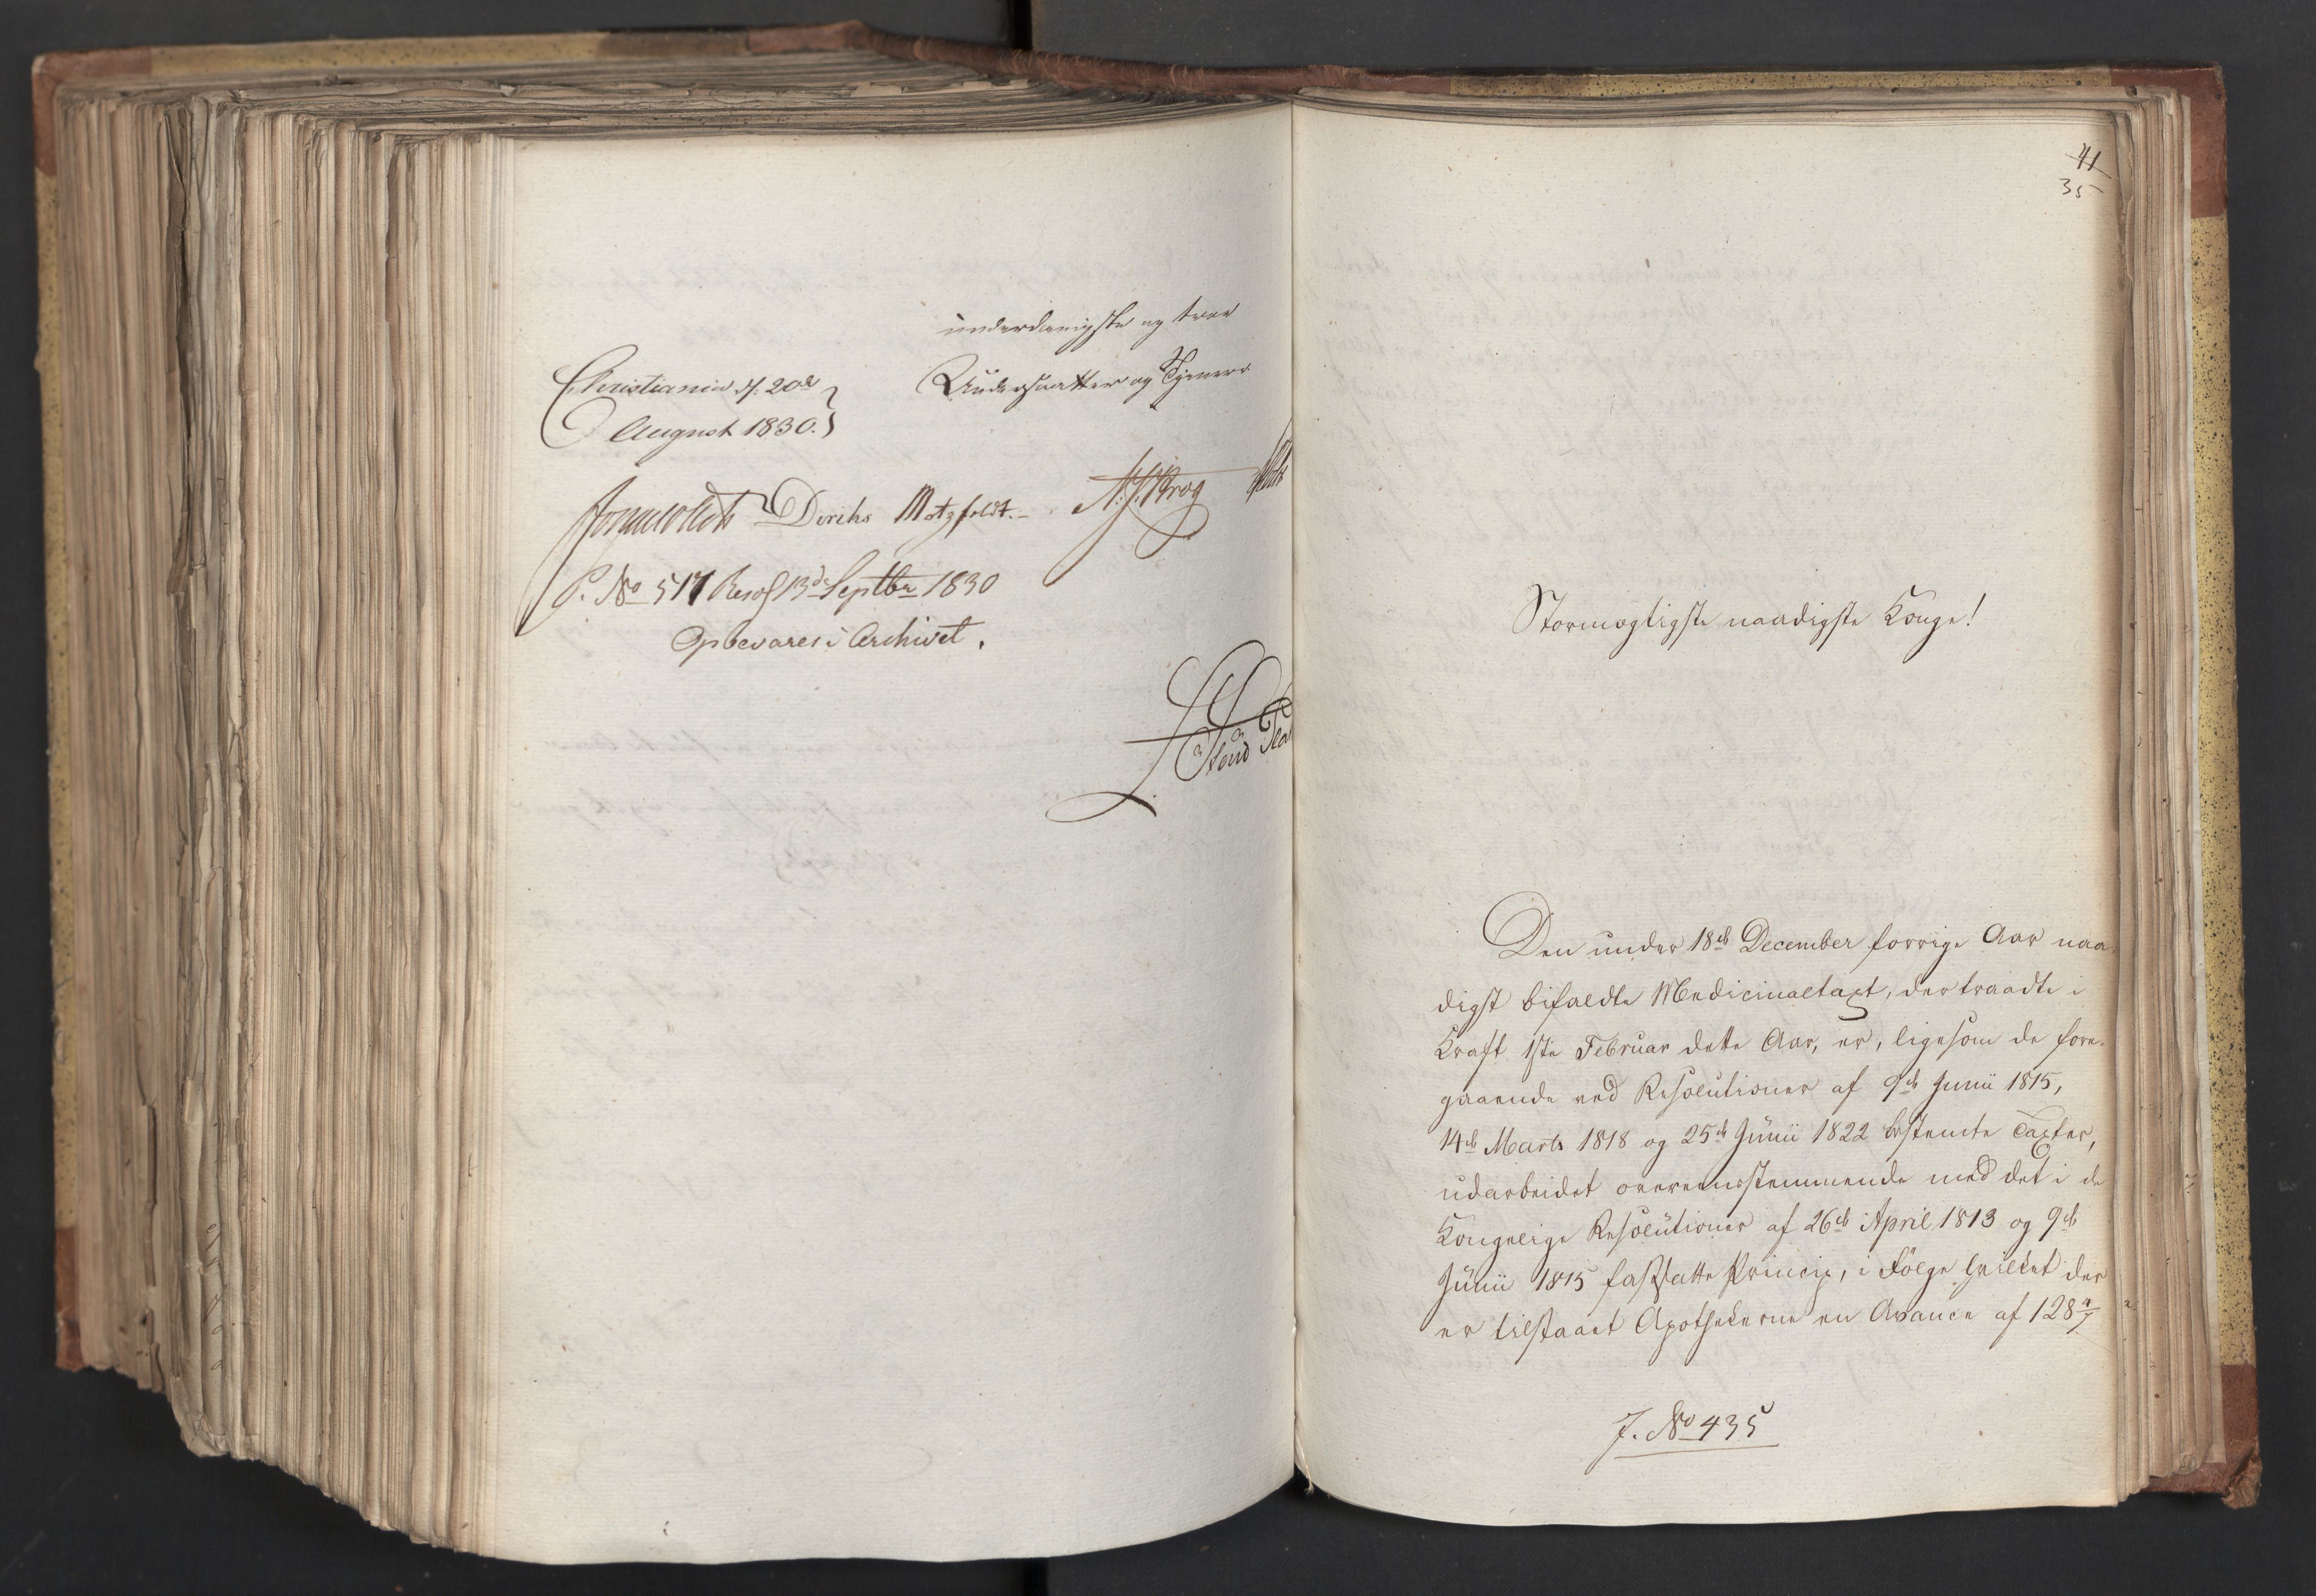 underdanigste og troe
Undersaatter og Tjenere
Christiania d. 20de
August 1830.
Jonas Collett Diriks Motzfeldt. A: S: Krog
P. No 517 Resol 13de Septbr 1830
Opbevares i Archivet.
41
35
Stormægtigste naadigste Konge!
Den under 18de December forrige Aar naa
digst bifaldte Medicinaltaxt, der traadte i
Kraft 1ste Februar dette Aar, er, ligesom de fore-
gaaende ved Resolutioner af 9de Junii 1815,
14de Marts 1818 og 25de Junii 1822 bestemte Taxter,
udarbeidet overeensstemmende med det i de
Kongelige Resolutioner af 26de April 1813 og 9de
Junii 1815 fastsatte Princip, i Følge hvilket der
er tilstaaet Apothekerne en Avance af 128 4/7
J. No 435